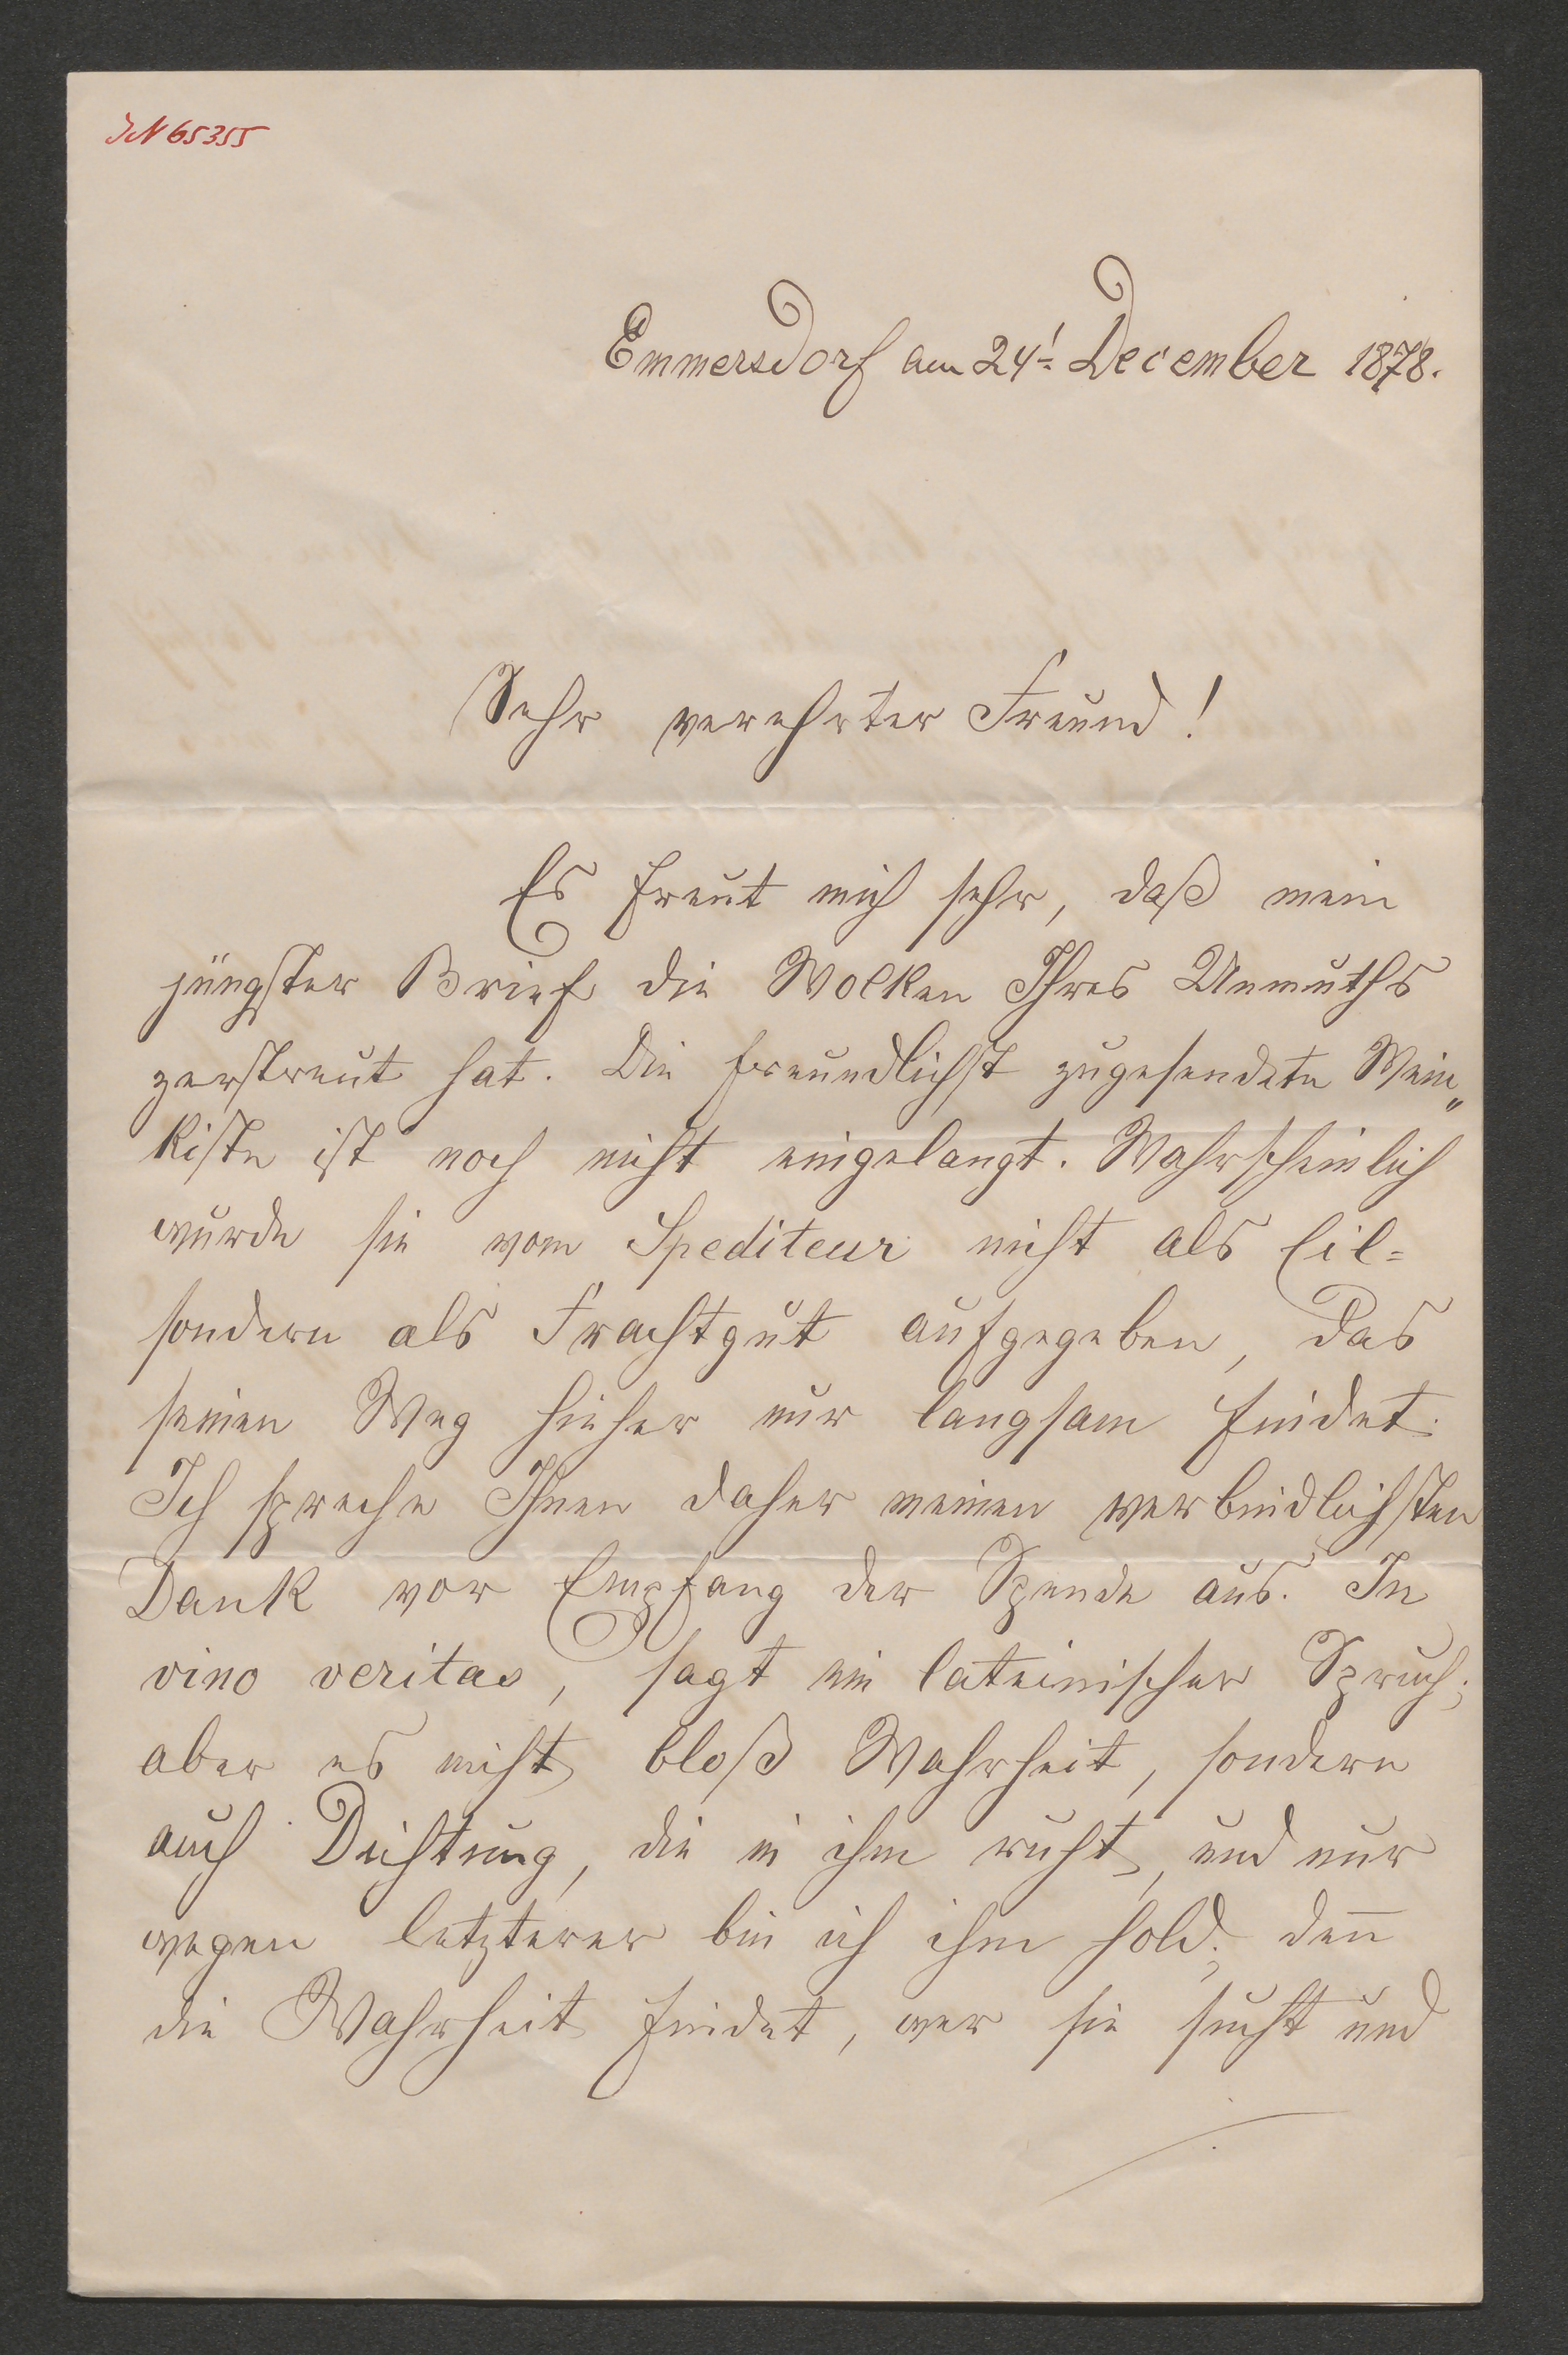 IN 65355
Emmersdorf am 24t December 1878.
Sehr verehrter Freund!
Es freut mich sehr, daß mein
jüngster Brief die Wolken Ihres Unmuths
zerstreut hat. Die freundlichst zugesendete Wein„
kiste ist noch nicht eingelangt. Wahrscheinlich
wurde sie vom Spediteur nicht als Eil=
sondern als Frachtgut aufgegeben, das
seinen Weg hieher nur langsam findet.
Ich spreche Ihnen daher meinen verbindlichsten
Dank vor Empfang der Spende aus. In
vino veritas, sagt ein lateinischer Spruch;
aber es nicht bloß Wahrheit, sondern
auch Dichtung, die in ihm ruht, und nur
wegen letzterer bin ich ihm hold; den̅
die Wahrheit findet, wer sie sucht und